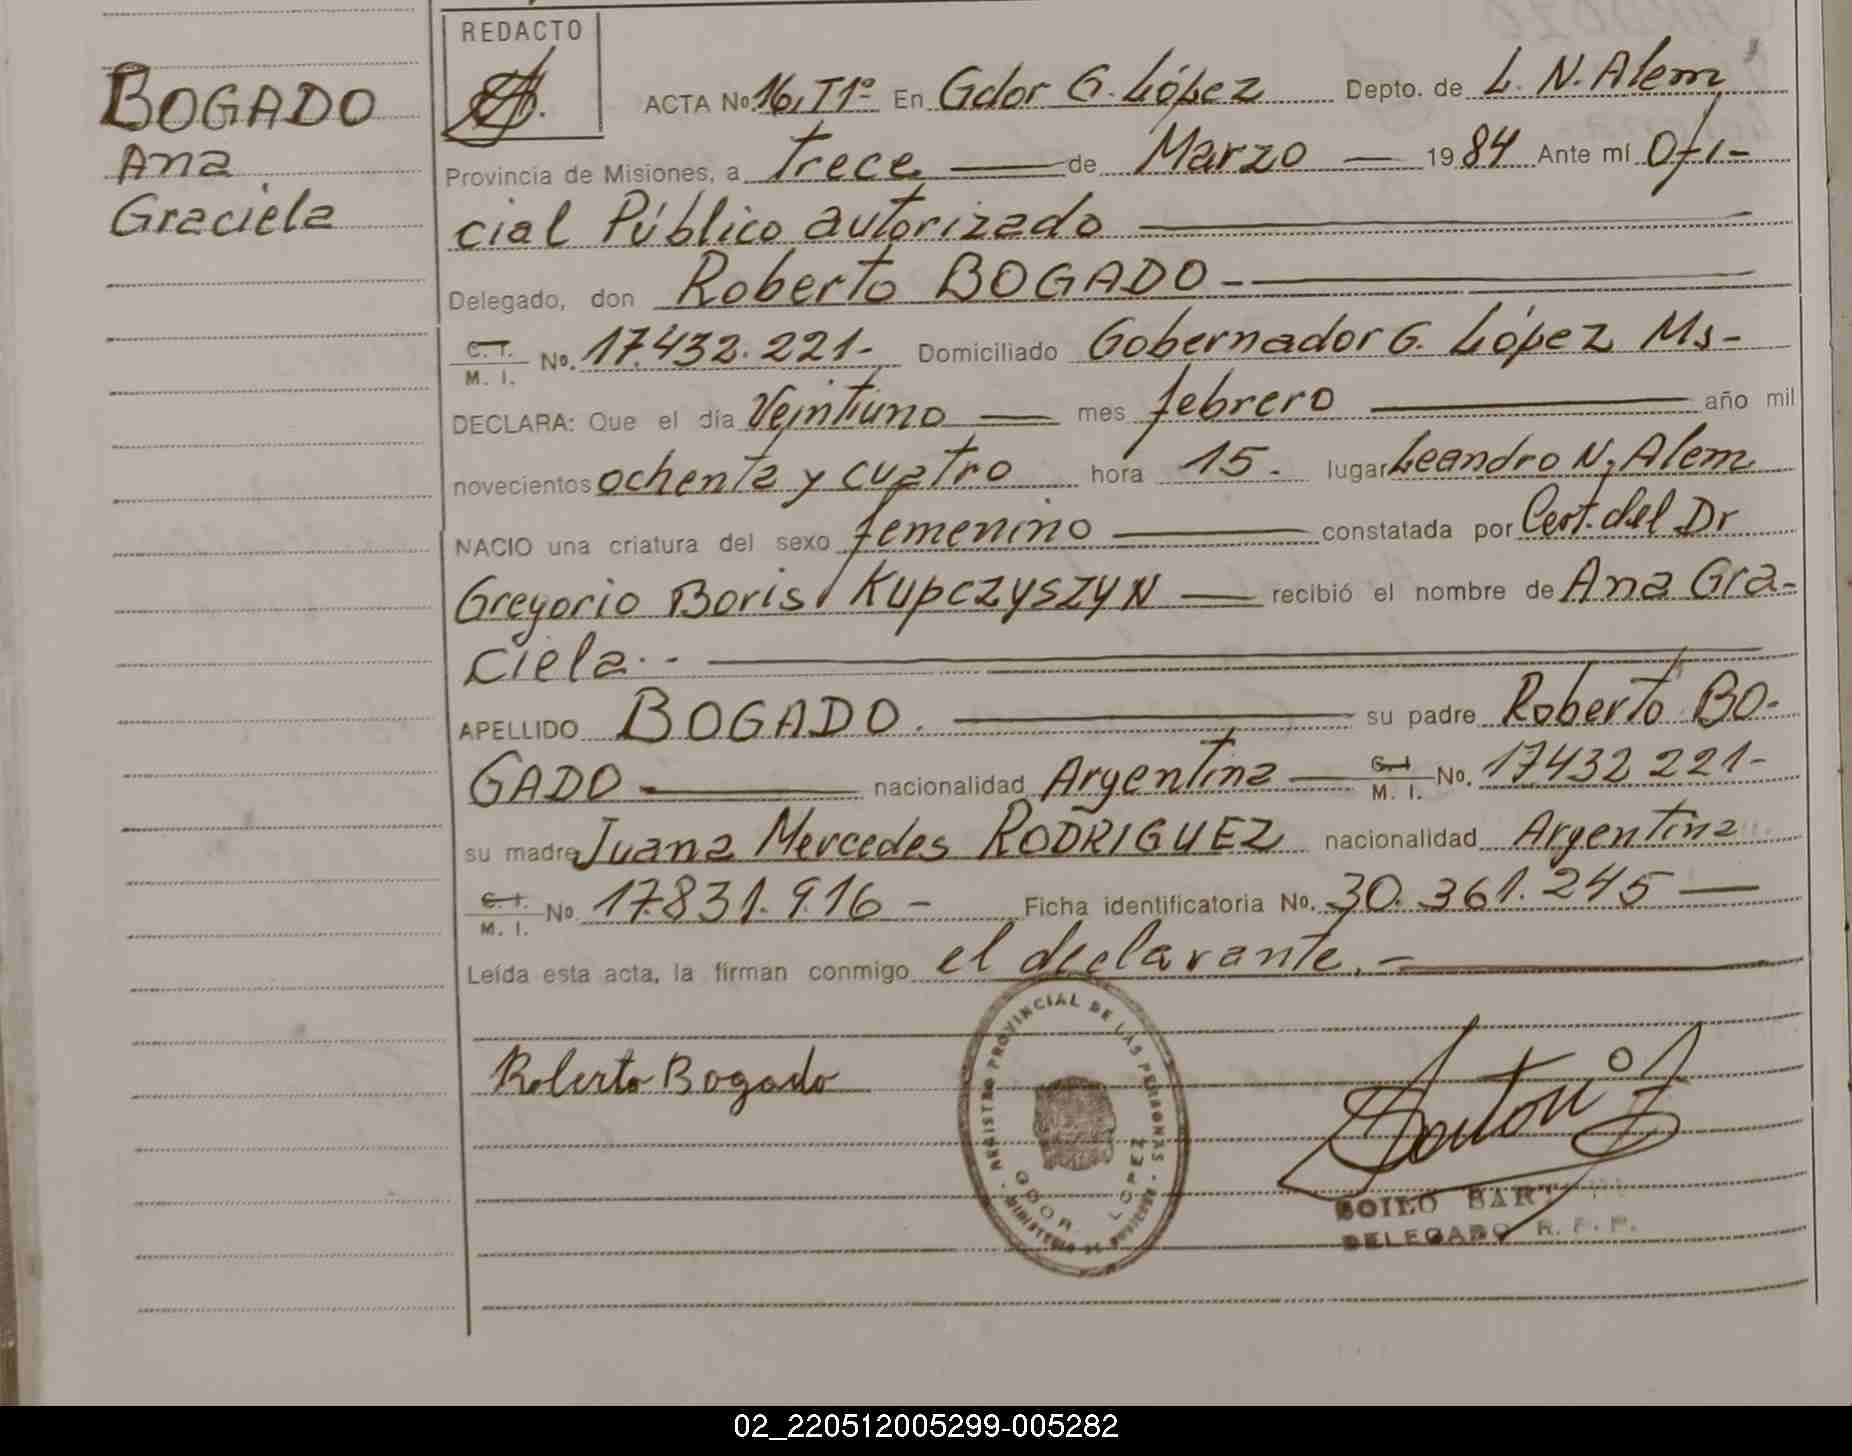 BOGADO
Ana
Graciela
REDACTO
ACTA No. 16, T1º En Gdor G. López Depto. de L. N. Alem,
Provincia de Misiones, a trece — de Marzo — 1984 Ante mí Ofi-
cial Público autorizado —
Delegado, don Roberto BOGADO - —
C. I.
M. I. No. 17.432.221.- Domiciliado Gobernador G. López Ms-
DECLARA: Que el día Veintiuno — mes febrero — año mil
novecientos ochenta y cuatro hora 15. lugar Leandro N. Alem
NACIO una criatura del sexo femenino — constatada por Cert. del Dr
Gregorio Boris Kupczyszyn — recibió el nombre de Ana Gra-
ciela.- —
APELLIDO BOGADO. — su padre Roberto BO-
GADO — nacionalidad Argentina — C. I. M. I. No. 17432 221-
su madre Juana Mercedes RODRIGUEZ nacionalidad Argentina
C. I.
M. I. No 17.831.916 - Ficha identificatoria No. 30.361.245 —
Leída esta acta, la firman conmigo el declarante.- —
Roberto Bogado
REGISTRO PROVINCIAL DE LAS PERSONAS
GDOR. LOPEZ
DELEGADO R. P. P.
02_220512005299-005282